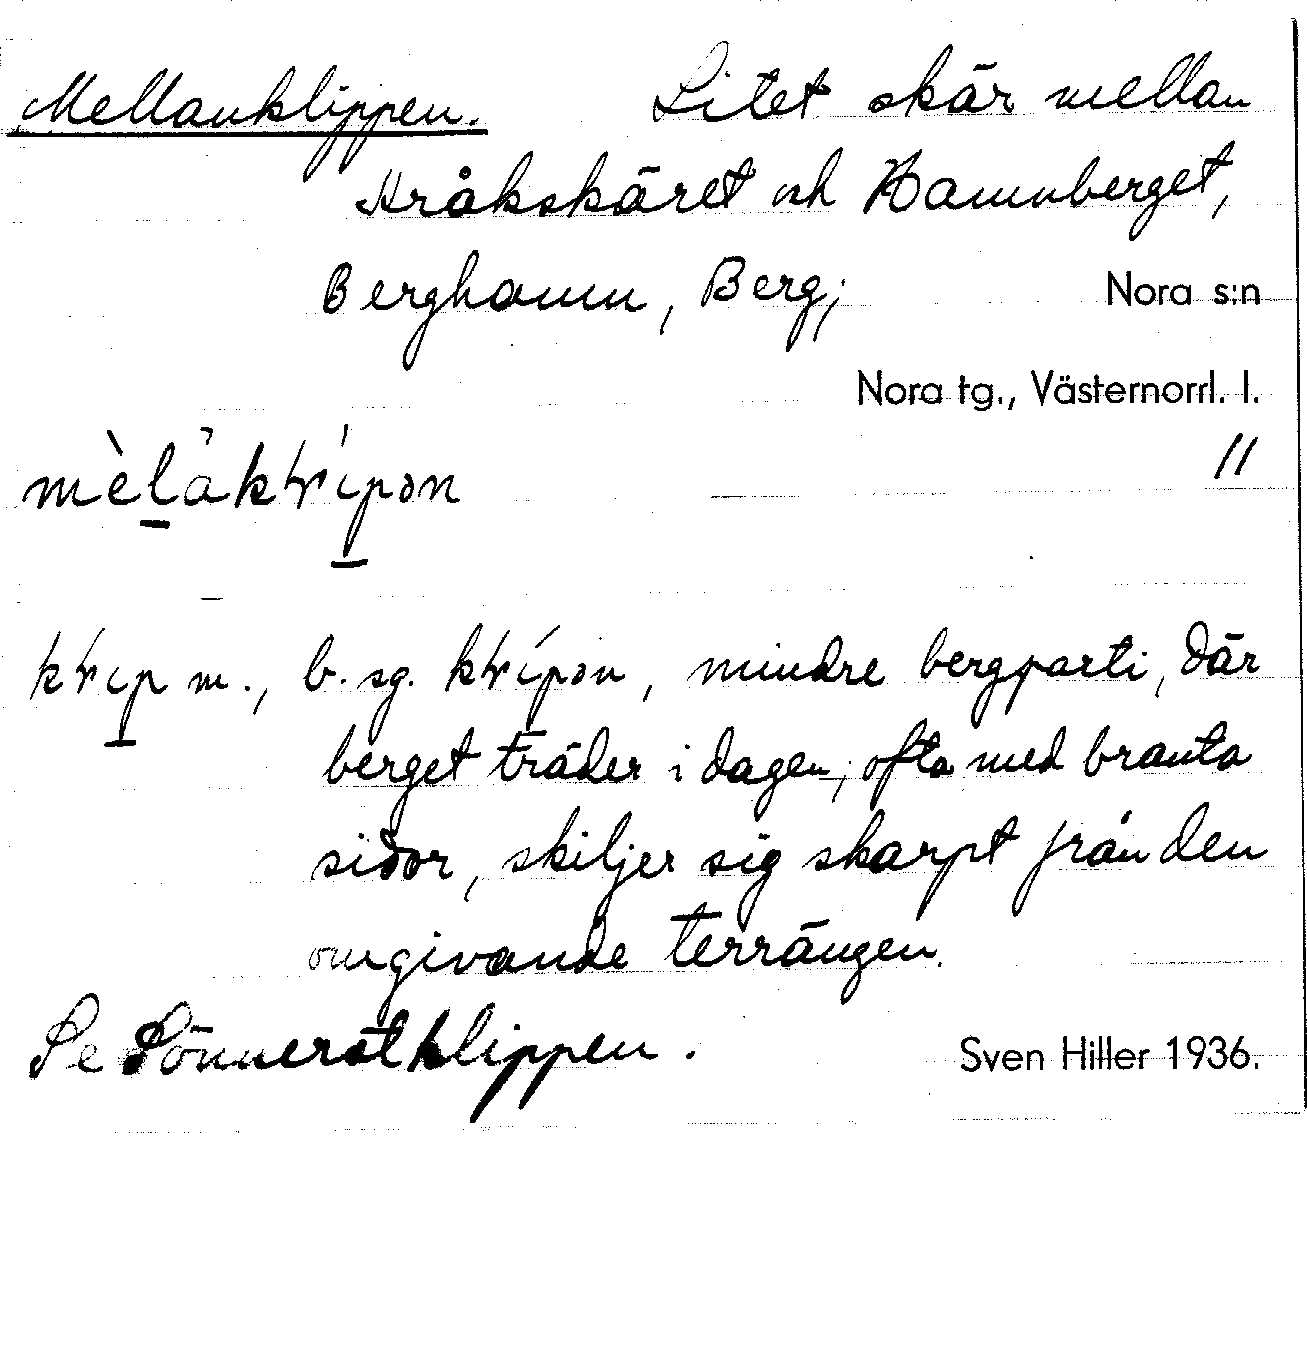 Mellanklippen. Litet skär mellan
Kråkskäret och Hamnberget,
Berghamn, Berg; Nora s:n
Nora tg., Västernorrl. l.
11
m., b. sg. , mindre bergparti, där
berget träder i dagen, ofta med branta
sidor, skiljer sig skarpt från den
omgivande terrängen.
Se Sönneratklippen. Sven Hiller 1936.